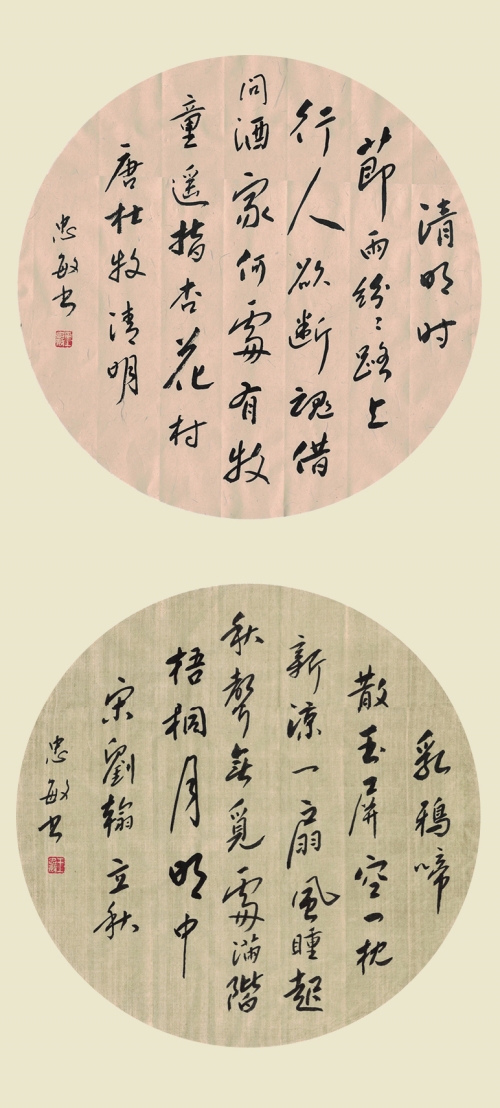 清明时
節雨紛〻路上
行人欲断魂借
问酒家何處有牧
童遥指杏花村
唐杜牧清明
忠敏书
乳鴉啼
散玉屏空一枕
新凉一扇風睡起
秋聲無覓處滿階
梧桐月明中
宋劉翰立秋
忠敏书